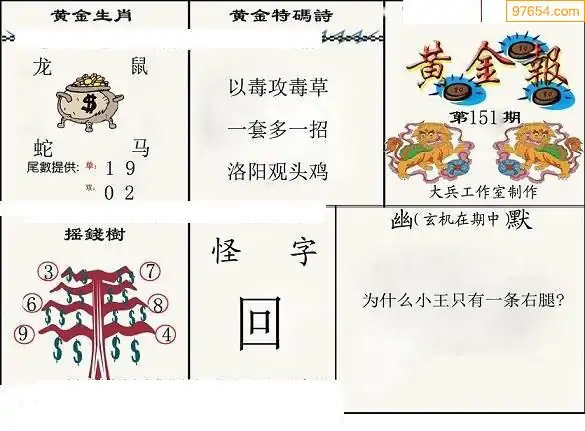 97654.com
黄金生肖
龙 鼠
蛇 马
尾數提供: 单: 1 9
双: 0 2
黄金特碼詩
以毒攻毒草
一套多一招
洛阳观头鸡
黄金報
10 10
10
第151期
大兵工作室制作
摇錢樹
③ ⑦
⑥ ⑧
⑨ ④
怪 字
回
幽(玄机在期中)默
为什么小王只有一条右腿?